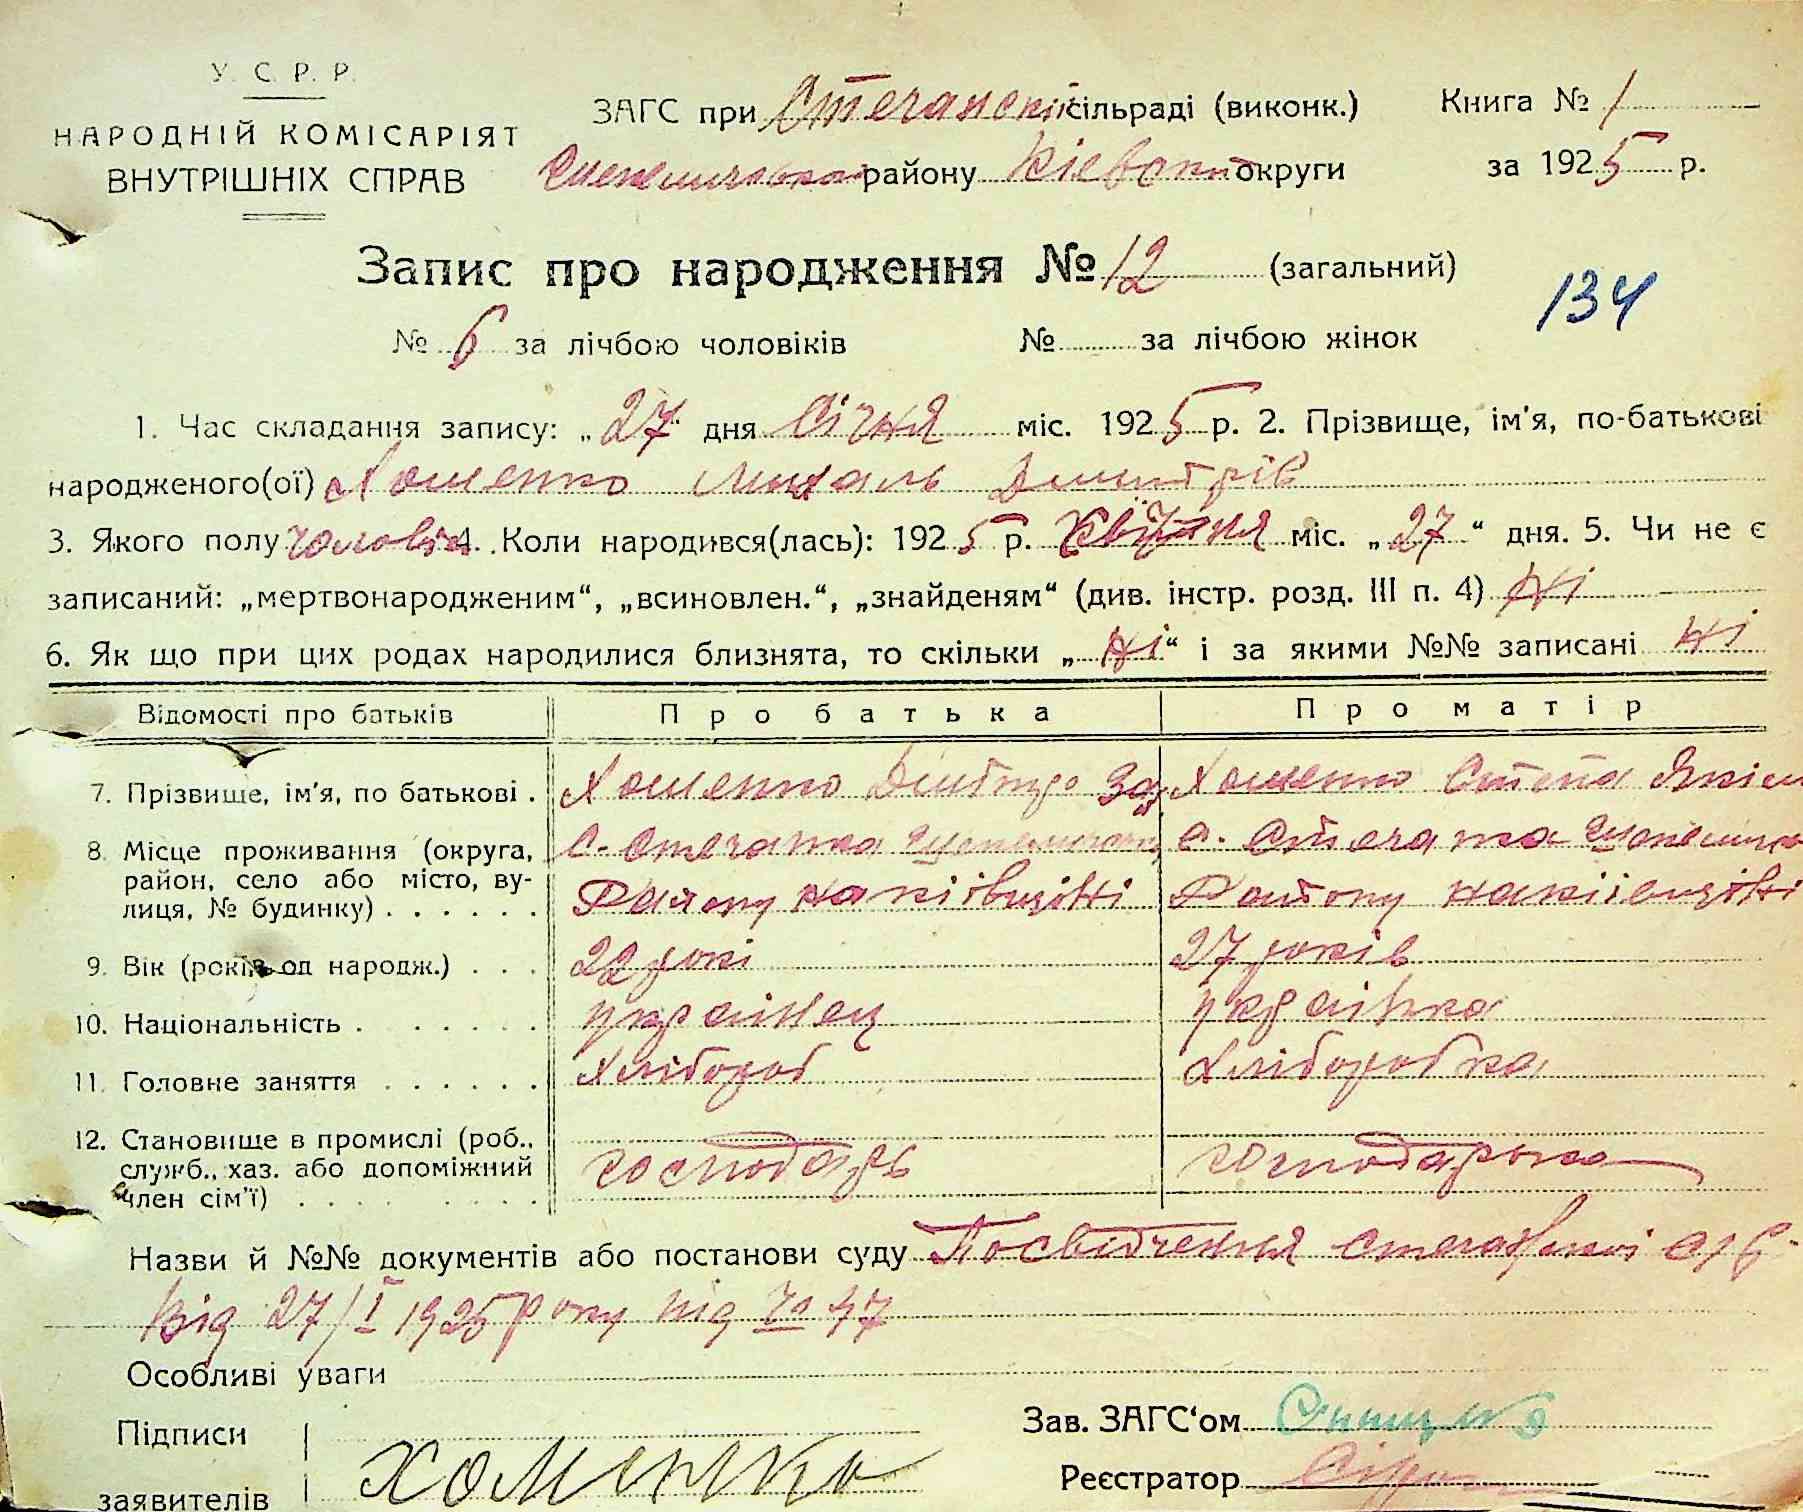 У. С. Р. Р.
НАРОДНІЙ КОМІСАРІЯТ
ВНУТРІШНІХ СПРАВ
ЗАГС при Стечанскій сільраді (виконк.)
району Кіевски округи
Книга № 1
за 1925 р.
Запис про народження № 12 (загальний)
134
№ 6 за лічбою чоловіків № за лічбою жінок
1. Час складання запису: „27" дня Січня міс. 1925 р. 2. Прізвище, ім'я, по-батькові
народженого(ої) Хоменко Михаль Дмитрів
3. Якого полу чоловіч 4. Коли народився(лась): 1925 р. міс. „27" дня. 5. Чи не є
записаний: „мертвонародженим“, „всиновлен.“, „знайденям“ (див. інстр. розд. III п. 4) Ні
6. Як що при цих родах народилися близнята, то скільки „Ні“ і за якими №№ записані Ні
Відомості про батьків Про батька Про матір
7. Прізвище, ім'я, по батькові . Хоменко Дмитро Зах Хоменко Степа Якім
8. Місце проживання (округа, с. Стечанка с. Стечанка
район, село або місто, ву- Району на Київщіні Району на Київщіні
лиця, № будинку) . . . . . .
9. Вік (років од народж.) . . . 22 рокі 27 років
10. Національність . . . . . . українец українка
11. Головне заняття . . . . . . Хлібороб Хліборобка
12. Становище в промислі (роб., господарь господарька
служб., хаз. або допоміжний
член сім'ї) . . . . . . .
Назви й №№ документів або постанови суду Посвідчення с/р
Від 27/I 1925 року під № 47
Особливі уваги
Підписи
заявителів Хоменко
Зав. ЗАГС‘ом
Реєстратор